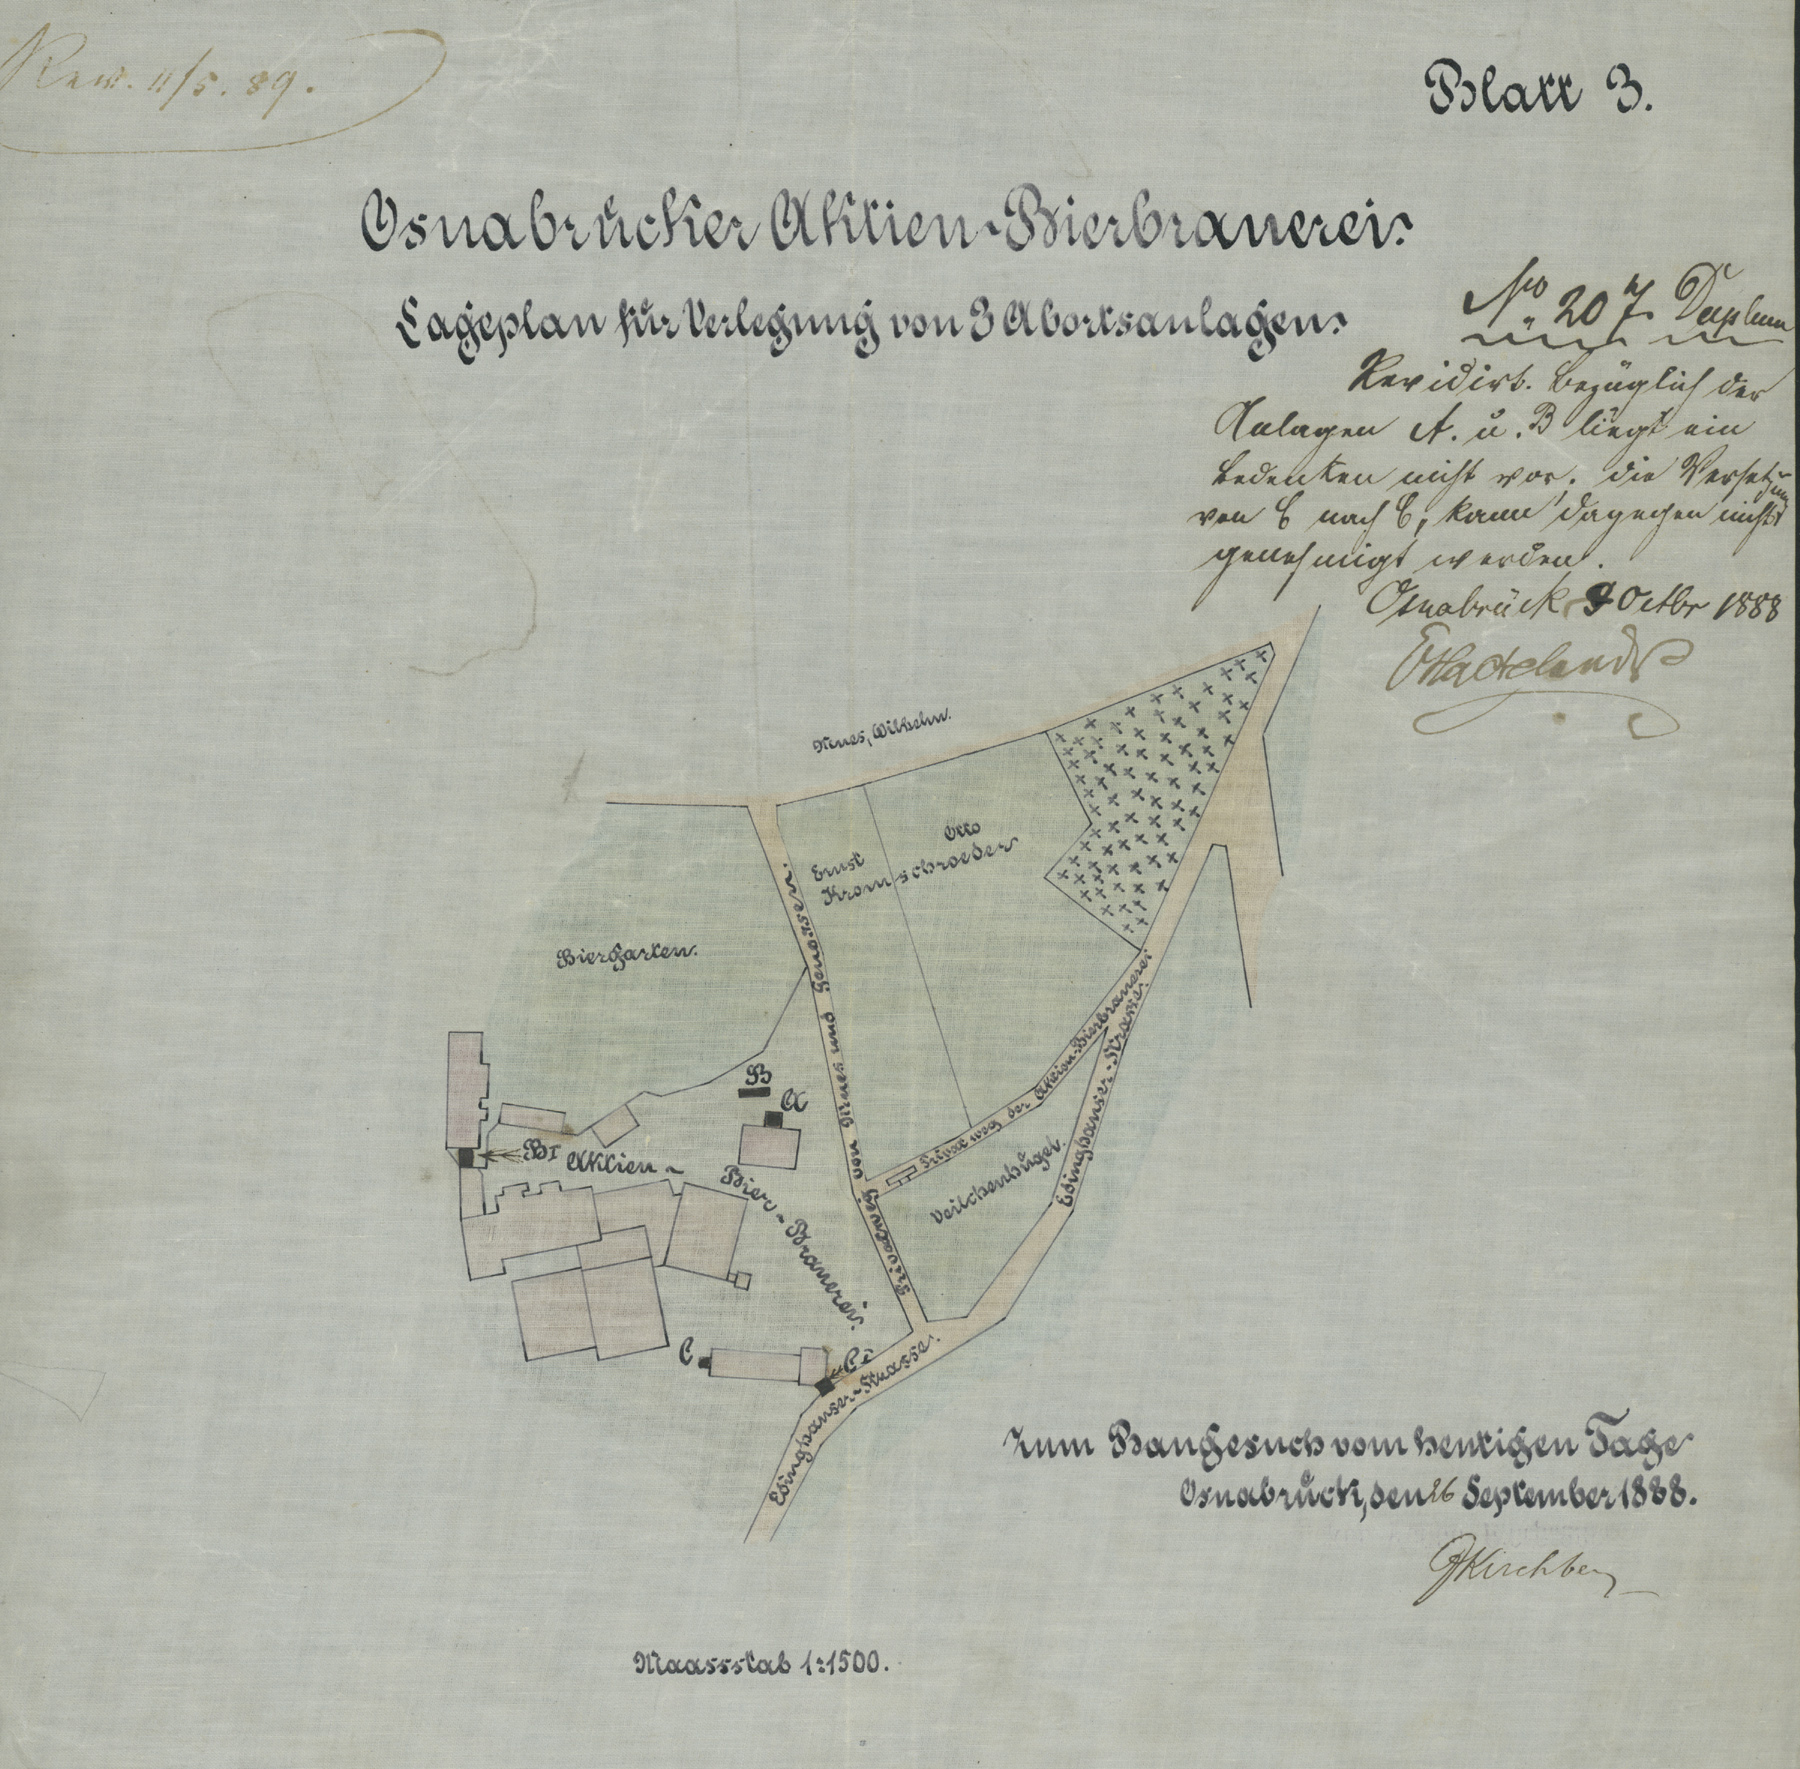 Rev. 11/5. 89.
Blatt 3.
Osnabrücker Aktien-Bierbrauerei.
Lageplan für Verlegung von 3 Abortsanlagen.
No 207. Duplum
Revidirt. Bezüglich der
Anlagen A. u. B liegt ein
Bedenken nicht vor; die Versetzung
von C nach C, kann dagegen nicht
genehmigt werden.
Osnabrück 9 Octbr 1888
Wilhelm.
Ernst
Otto
Kromschroeder
Biergarten.
Privatweg von und Genossen.
Privatweg der Aktien-Bierbrauerei
Edinghauser-Strasse.
Veilchenhügel.
B
A
BI
Aktien-
Bier-Brauerei.
C
CI
Edinghauser-Strasse.
Zum Baugesuch vom heutigen Tage
Osnabrück, den 26 September 1888.
Kirchberg
Maassstab 1:1500.